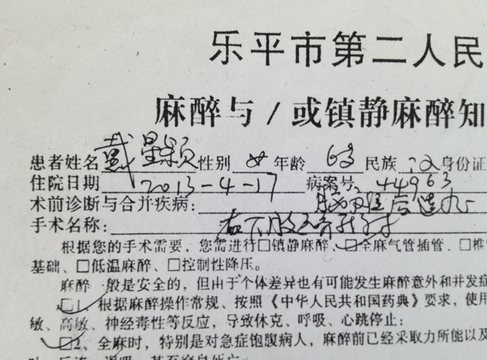 乐平市第二人民
麻醉与/或镇静麻醉知
患者姓名 戴 性别 女 年龄 民族 汉 身份证
住院日期 2013-4-17 病案号 44963
术前诊断与合并疾病：
手术名称： 右下肢
根据您的手术需要，您需进行☐镇静麻醉、☑全麻气管插管、☐椎
基础、☐低温麻醉、☐控制性降压。
麻醉一般是安全的，但由于个体差异也有可能发生麻醉意外和并发症
☑1、根据麻醉操作常规、按照《中华人民共和国药典》要求，使用
敏、高敏、神经毒性等反应，导致休克、呼吸、心跳停止：
☑2、全麻时，特别是对急症饱腹病人，麻醉前已经采取力所能以及